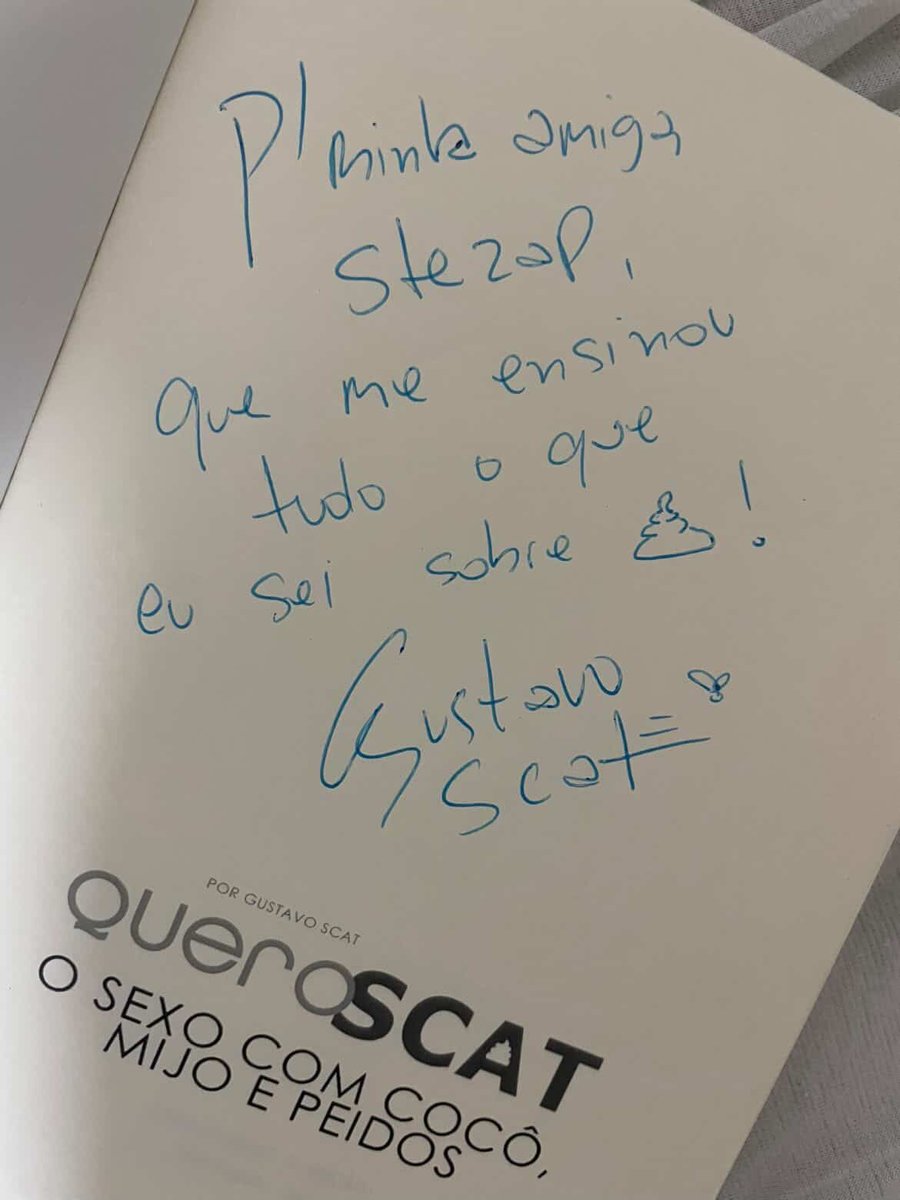 P/ minha amiga
Stezap,
que me ensinou
tudo o que
eu sei sobre 💩!
Gustavo
Scat
POR GUSTAVO SCAT
QueroSCAT
O SEXO COM COCÔ,
MIJO E PEIDOS